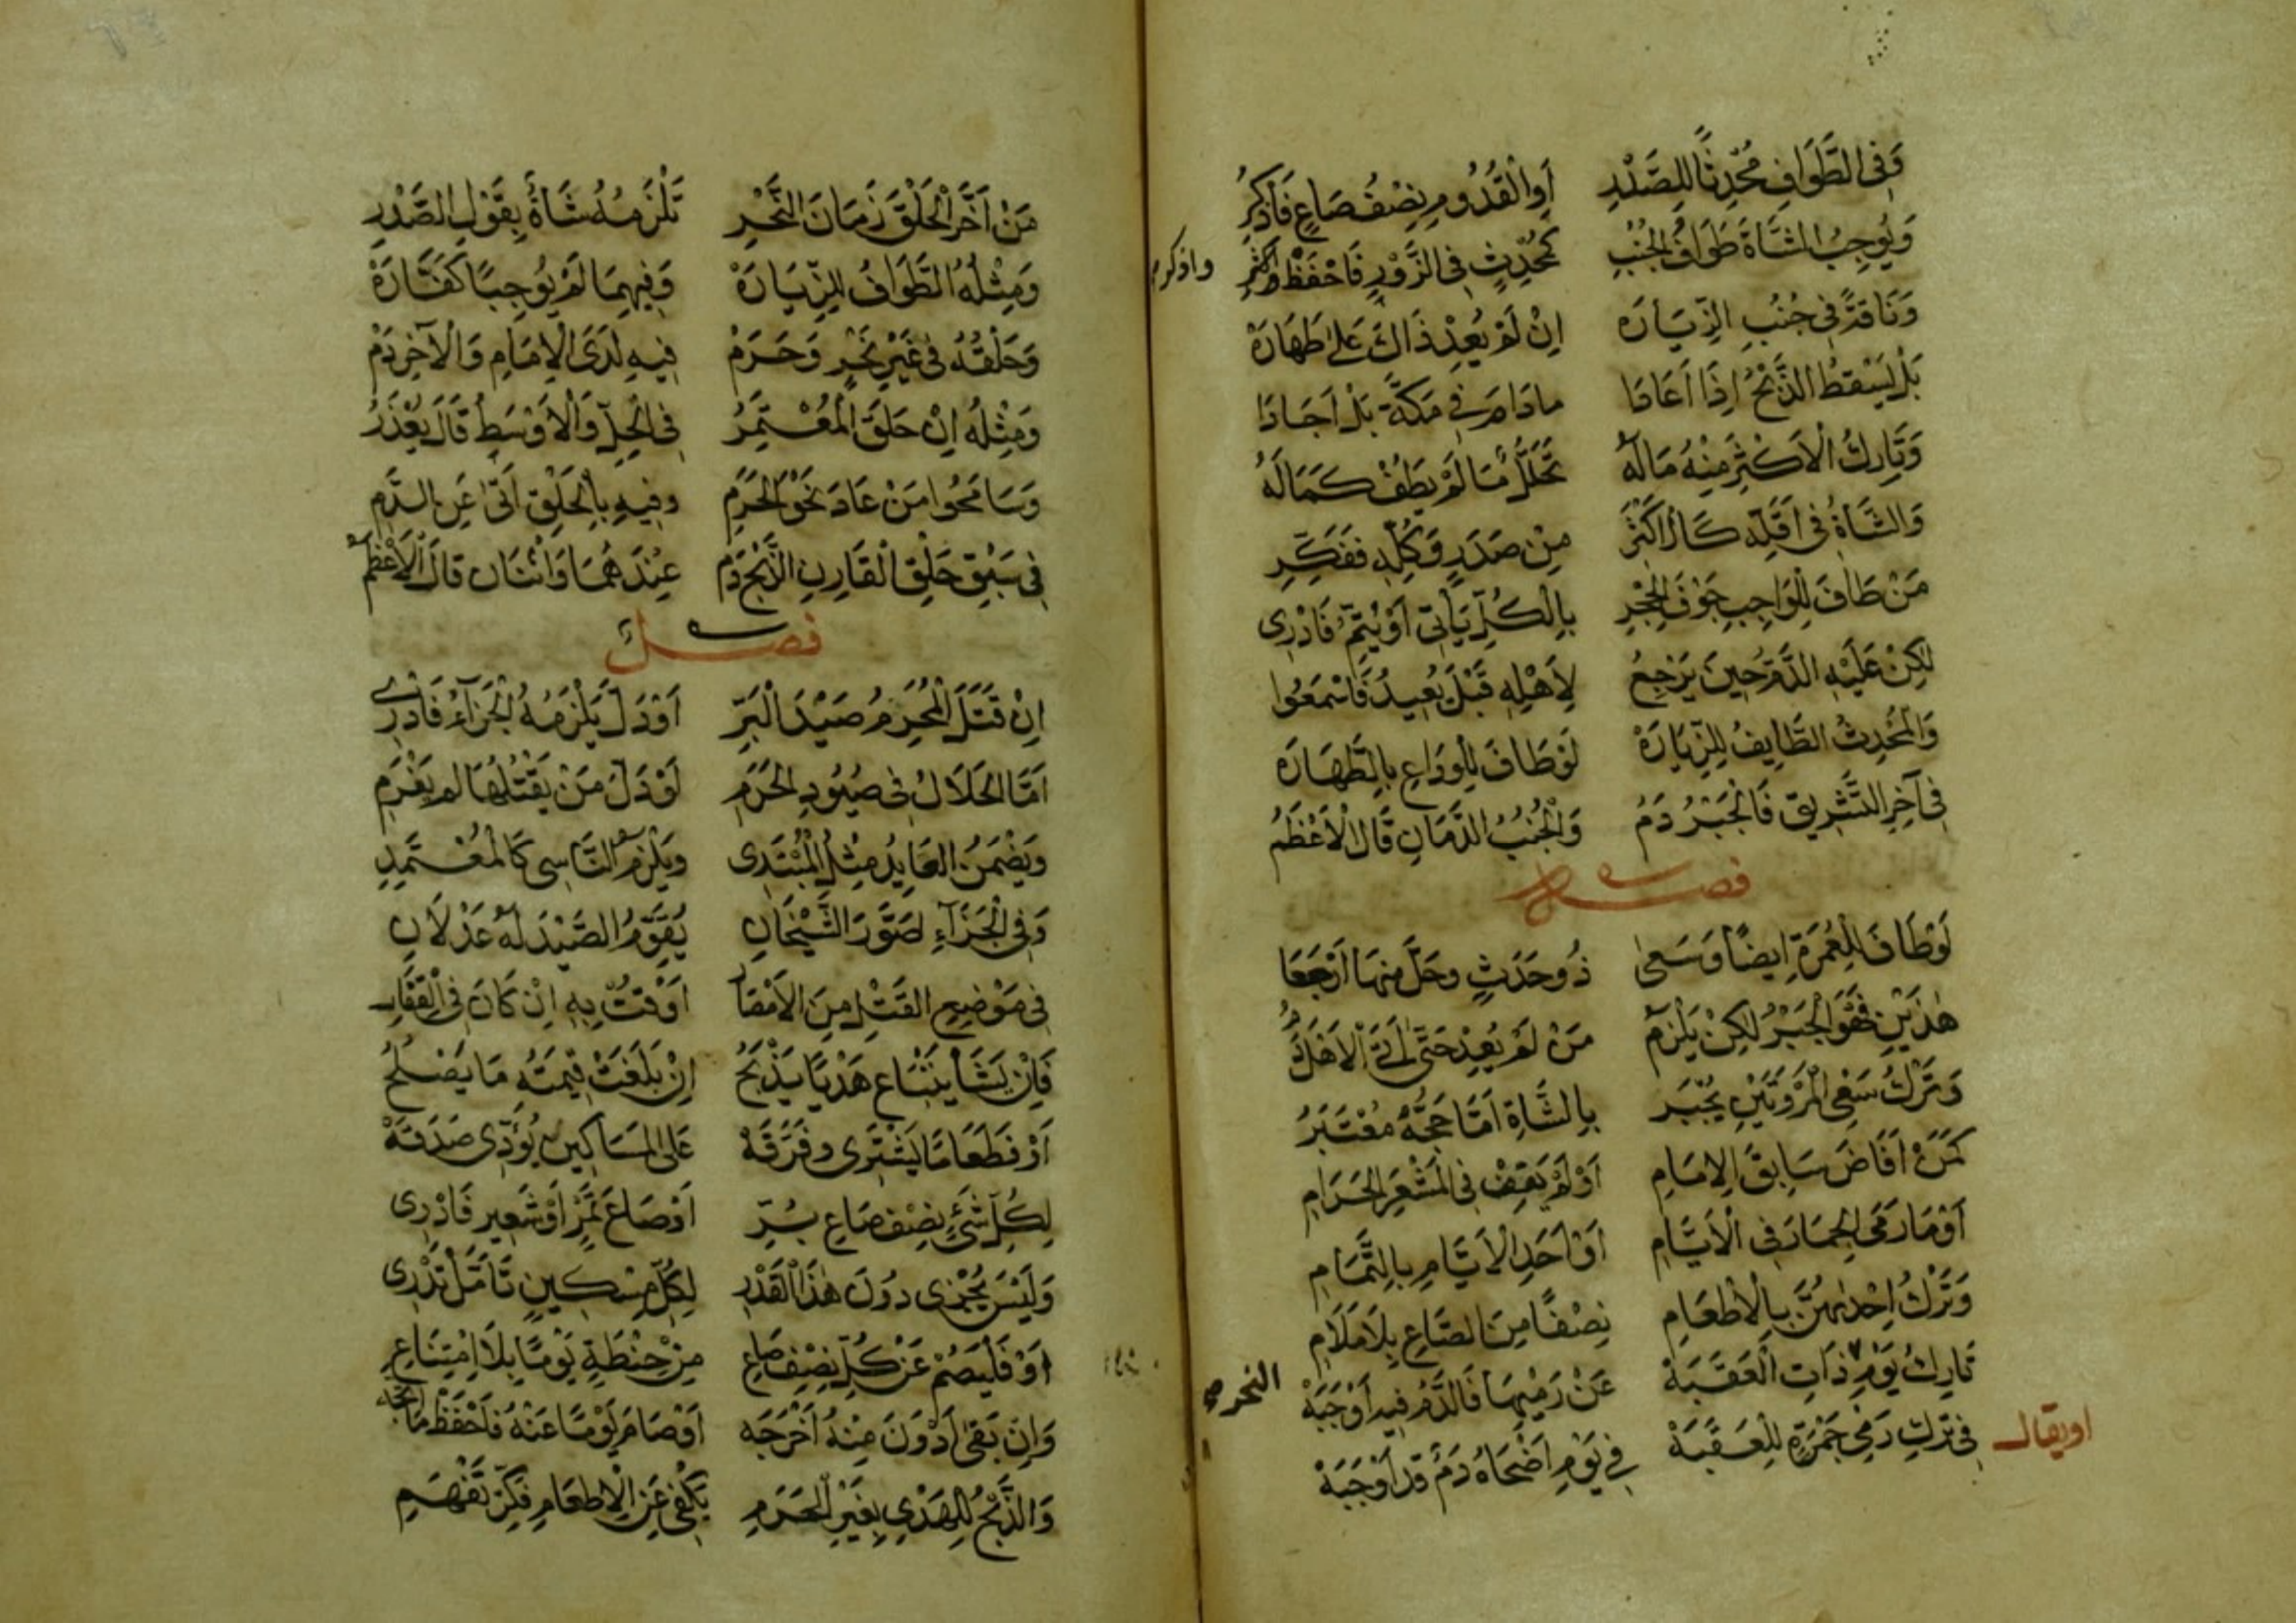 وَفِي الطَّوَافِ مُحْدِثًا لِلصَّدْرِ أَوِ الْقُدُومِ نِصْفُ صَاعٍ فَاذْكُرُ
وَيُوجِبُ الشَّاةَ طَوَافُ الْجُنُبِ كَمُحْدِثٍ فِي الزَّوْرِ فَاحْفَظْ واذكر
وَنَاقَةً فِي جُنُبِ الزِّيَارَه اِنْ لَمْ يُعِدْ ذَاكَ عَلَى طَهَارَهْ
بَلْ يَسْقُطُ الذَّبْحُ اِذَا أَعَادَا مادَامَ فِي مَكَّةَ بَلْ اَجَادَا
وَتَارِكُ الْاَكْثَرِ مِنْهُ مَالَهُ تَحَلُّلٌ مَا لَمْ يَطُفْ كَمَالَهُ
وَالشَّاةُ فِي أَقَلِّهِ كَأَكْثَرَ مِنْ صَدَرٍ وَكُلِّهِ فَفَكِّرِ
مَنْ طَافَ لِلْوَاجِبِ جَوْفَ الْحِجْرِ بِالْكُلِّ يَأْتِي اَوْ يُتِمُّ فَادْرِى
لكِنْ عَلَيْهِ الدَّمُ حِينَ يَرْجِعُ لِأَهْلِهِ قَبْلَ يُعِيدُ فَاسْمَعُوا
وَالْمُحْدِثُ الطَّايِفُ لِلزِّيَارَهْ لَوْ طَافَ لِلْوَدَاعِ بِالطَّهَارَه
فِي آخِرِ التَّشْرِيقِ فَالْجَبْرُ دَمُ وَالْجُنُبُ الدَّمَانِ قَالَ الْأَعْظَمُ
فصل
لَوْ طَافَ لِلْعُمْرَةِ اَيضًا وَسَعى ذُو حَدَثٍ وحَلَّ مِنهَا اَرْجَعَا
هٰذَيْنِ فَهُوَ الْجَبْرُ لكِنْ يَلْزَمُ مَنْ لَمْ يُعِدْ حَتَّى اَتَى الْاَهْلَ دَمُ
وَتَرْكُ سَعْيِ الْمَرْوَتَيْنِ يُجْبَرُ بِالشَّاةِ اَمَّا حَجُّهُ مُعْتَبَرُ
كَمَنْ اَفَاضَ سَابِقَ الاِمَامِ اَوْ لَمْ يَقِفْ فِي الْمَشْعَرِ الْحَرَامِ
اَوْ مَا رَمَى الْجِمَارَ فِي الْاَيَّامِ اَوْ اَحَدِ الْاَيَّامِ بِالتَّمَامِ
وَتَرْكُ اِحْدٰيهُنَّ بِالْاِطْعَامِ نِصْفًا مِنَ الصَّاعِ بِلَا مَلَامِ
تَارِكُ يَوْمِ ذَاتِ الْعَقَبَهْ عَنْ رَمْيِهَا فَالدَّمُ فِيهِ اَوْجَبَهْ
النحر صح
اويقال فِي تَرْكِ رَمْيِ جَمْرَةٍ لِلْعَقَبَهْ فِي يَوْمِ اَضْحَاهُ دَمٌ قَدْ اَوْجَبَهْ
واذكر
مَنْ اَخَّرَ الْحَلْقَ زَمَانَ النَّحْرِ تَلْزَمُهُ شَاةٌ بِقَوْلِ الصَّدْرِ
وَمِثْلُهُ الطَّوَافُ لِلزِّيَارَهْ وَفِيهِمَا لَمْ يُوجِبَا كَفَّارَهْ
وَحَلْقُهُ فِي غَيْرِ نَحْرٍ وَحَرَمْ فِيهِ لَدَى الْاِمَامِ وَالْآخِرِ دَمْ
وَمِثْلُهُ اِنْ حَلَقَ الْمُعْتَمِرُ فِي الْحِلِّ وَالْاَوْسَطِ قَالَ يُعْذَرُ
وَسَامَحُوا مَنْ عَادَ نَحْوَ الْحَرَمِ وفِيهِ بِالْحَلْقِ اَتَى عَنِ الدَّمِ
فِي سَبْقِ حَلْقِ الْقَارِنِ الذَّبْحَ دَم عِنْدَهُمَا وَاثْنَانِ قَالَ الْاَعْظَمُ
فصل
اِنْ قَتَلَ الْمُحْرِمُ صَيْدَ الْبَرِّ اَوْ دَلَّ يَلْزَمُهُ الْجَزَآءُ فَادْرِى
اَمَّا الْحَلَالُ فِي صُيُودِ الْحَرَمِ لَوْ دَلَّ مَنْ يَقْتُلُهَا لَم يَغْرَمِ
وَيَضْمَنُ الْعَايِدُ مِثْلَ الْمُبْتَدِى ويَلْزَمُ النَّاسِى كَالْمُعْتَمِدِ
وَفِي الْجَزَآءِ صَوَّرَ الشَّيْخَانِ يُقَوِّمُ الصَّيْدَ لَهُ عَدْلَانِ
فِي مَوْضِعِ الْقَتْلِ مِنَ الْاَمْصَارِ اَوْ قُرْبِهِ اِنْ كَانَ فِي الْقِفَارِ
فَاِنْ يَشَأْ يَبْتَاعُ هَدْيًا يَذْبَحُ اِنْ بَلَغَتْ قِيمَتُهُ مَا يَصْلُحُ
اَوْ فَطَعَامًا يَشْتَرِى وفَرَّقَهْ عَلَى الْمَسَاكِينِ يُؤَدِّى صَدَقَهْ
لِكُلِّ شَيْءٍ نِصْفُ صَاعِ بُرِّ اَوْ صَاعُ تَمْرٍ اَوْ شَعِيرٍ فَادْرِى
وَلَيْسَ يُجْزِى دُونَ هٰذَا الْقَدْرِ لِكُلِّ مِسْكِينٍ تَأَمَّلْ تَدْرِى
اَوْ فَلْيَصُمْ عَنْ كُلِّ نِصْفِ صَاعِ مِنْ حِنْطَةٍ يَوْمًا بِلَا اِمْتِنَاعِ
وَاِنْ بَقَى اَدْوَنَ مِنْهُ اَخْرَجَه اَوْ صَامَ يَوْمًا عَنْهُ فَاحْفَظْ مَا
وَالذَّبْحُ لِلْهَدْيِ بِغَيْرِ الْحَرَمِ يَكْفِي عَنِ الْاِطْعَامِ فَكِّرْ تَفْهَمِ